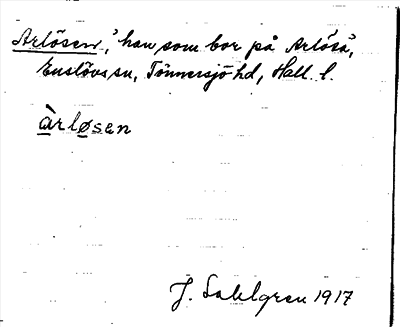 Arlösen, 'han som bor på Arlösa',
Enslövs sn, Tönnersjö hd, Hall. l.
àrløsen
J. Sahlgren 1917